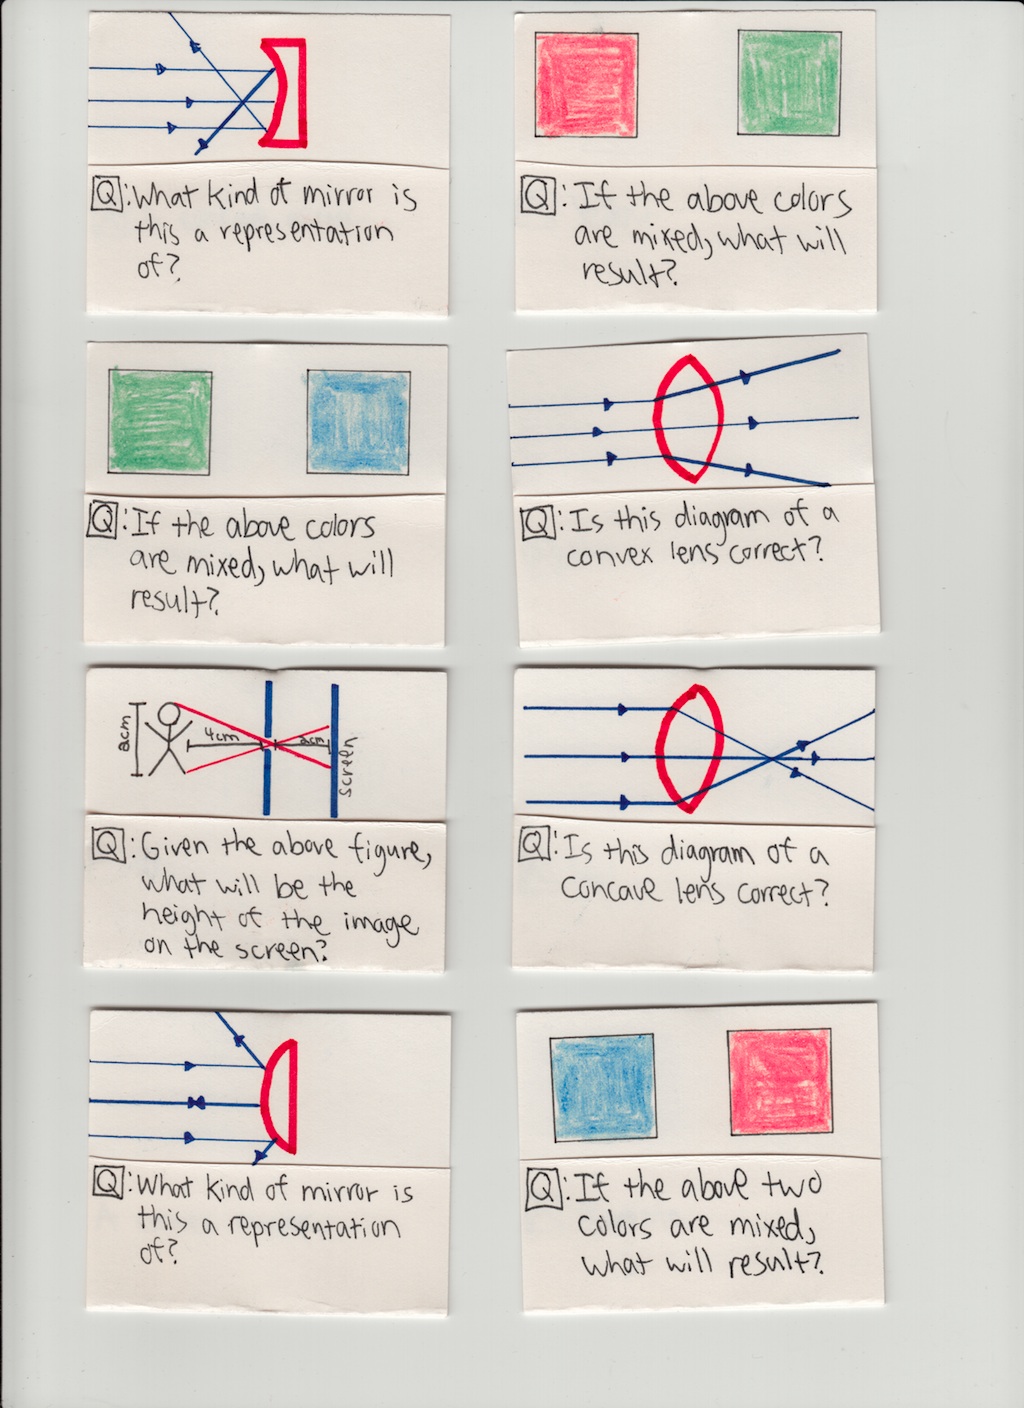 Q: What kind of mirror is
this a representation
of?
Q: If the above colors
are mixed, what will
result?
Q: If the above colors
are mixed, what will
result?
Q: Is this diagram of a
convex lens correct?
2cm
4cm
2cm
screen
Q: Given the above figure,
what will be the
height of the image
on the screen?
Q: Is this diagram of a
concave lens correct?
Q: What kind of mirror is
this a representation
of?
Q: If the above two
colors are mixed,
what will result?